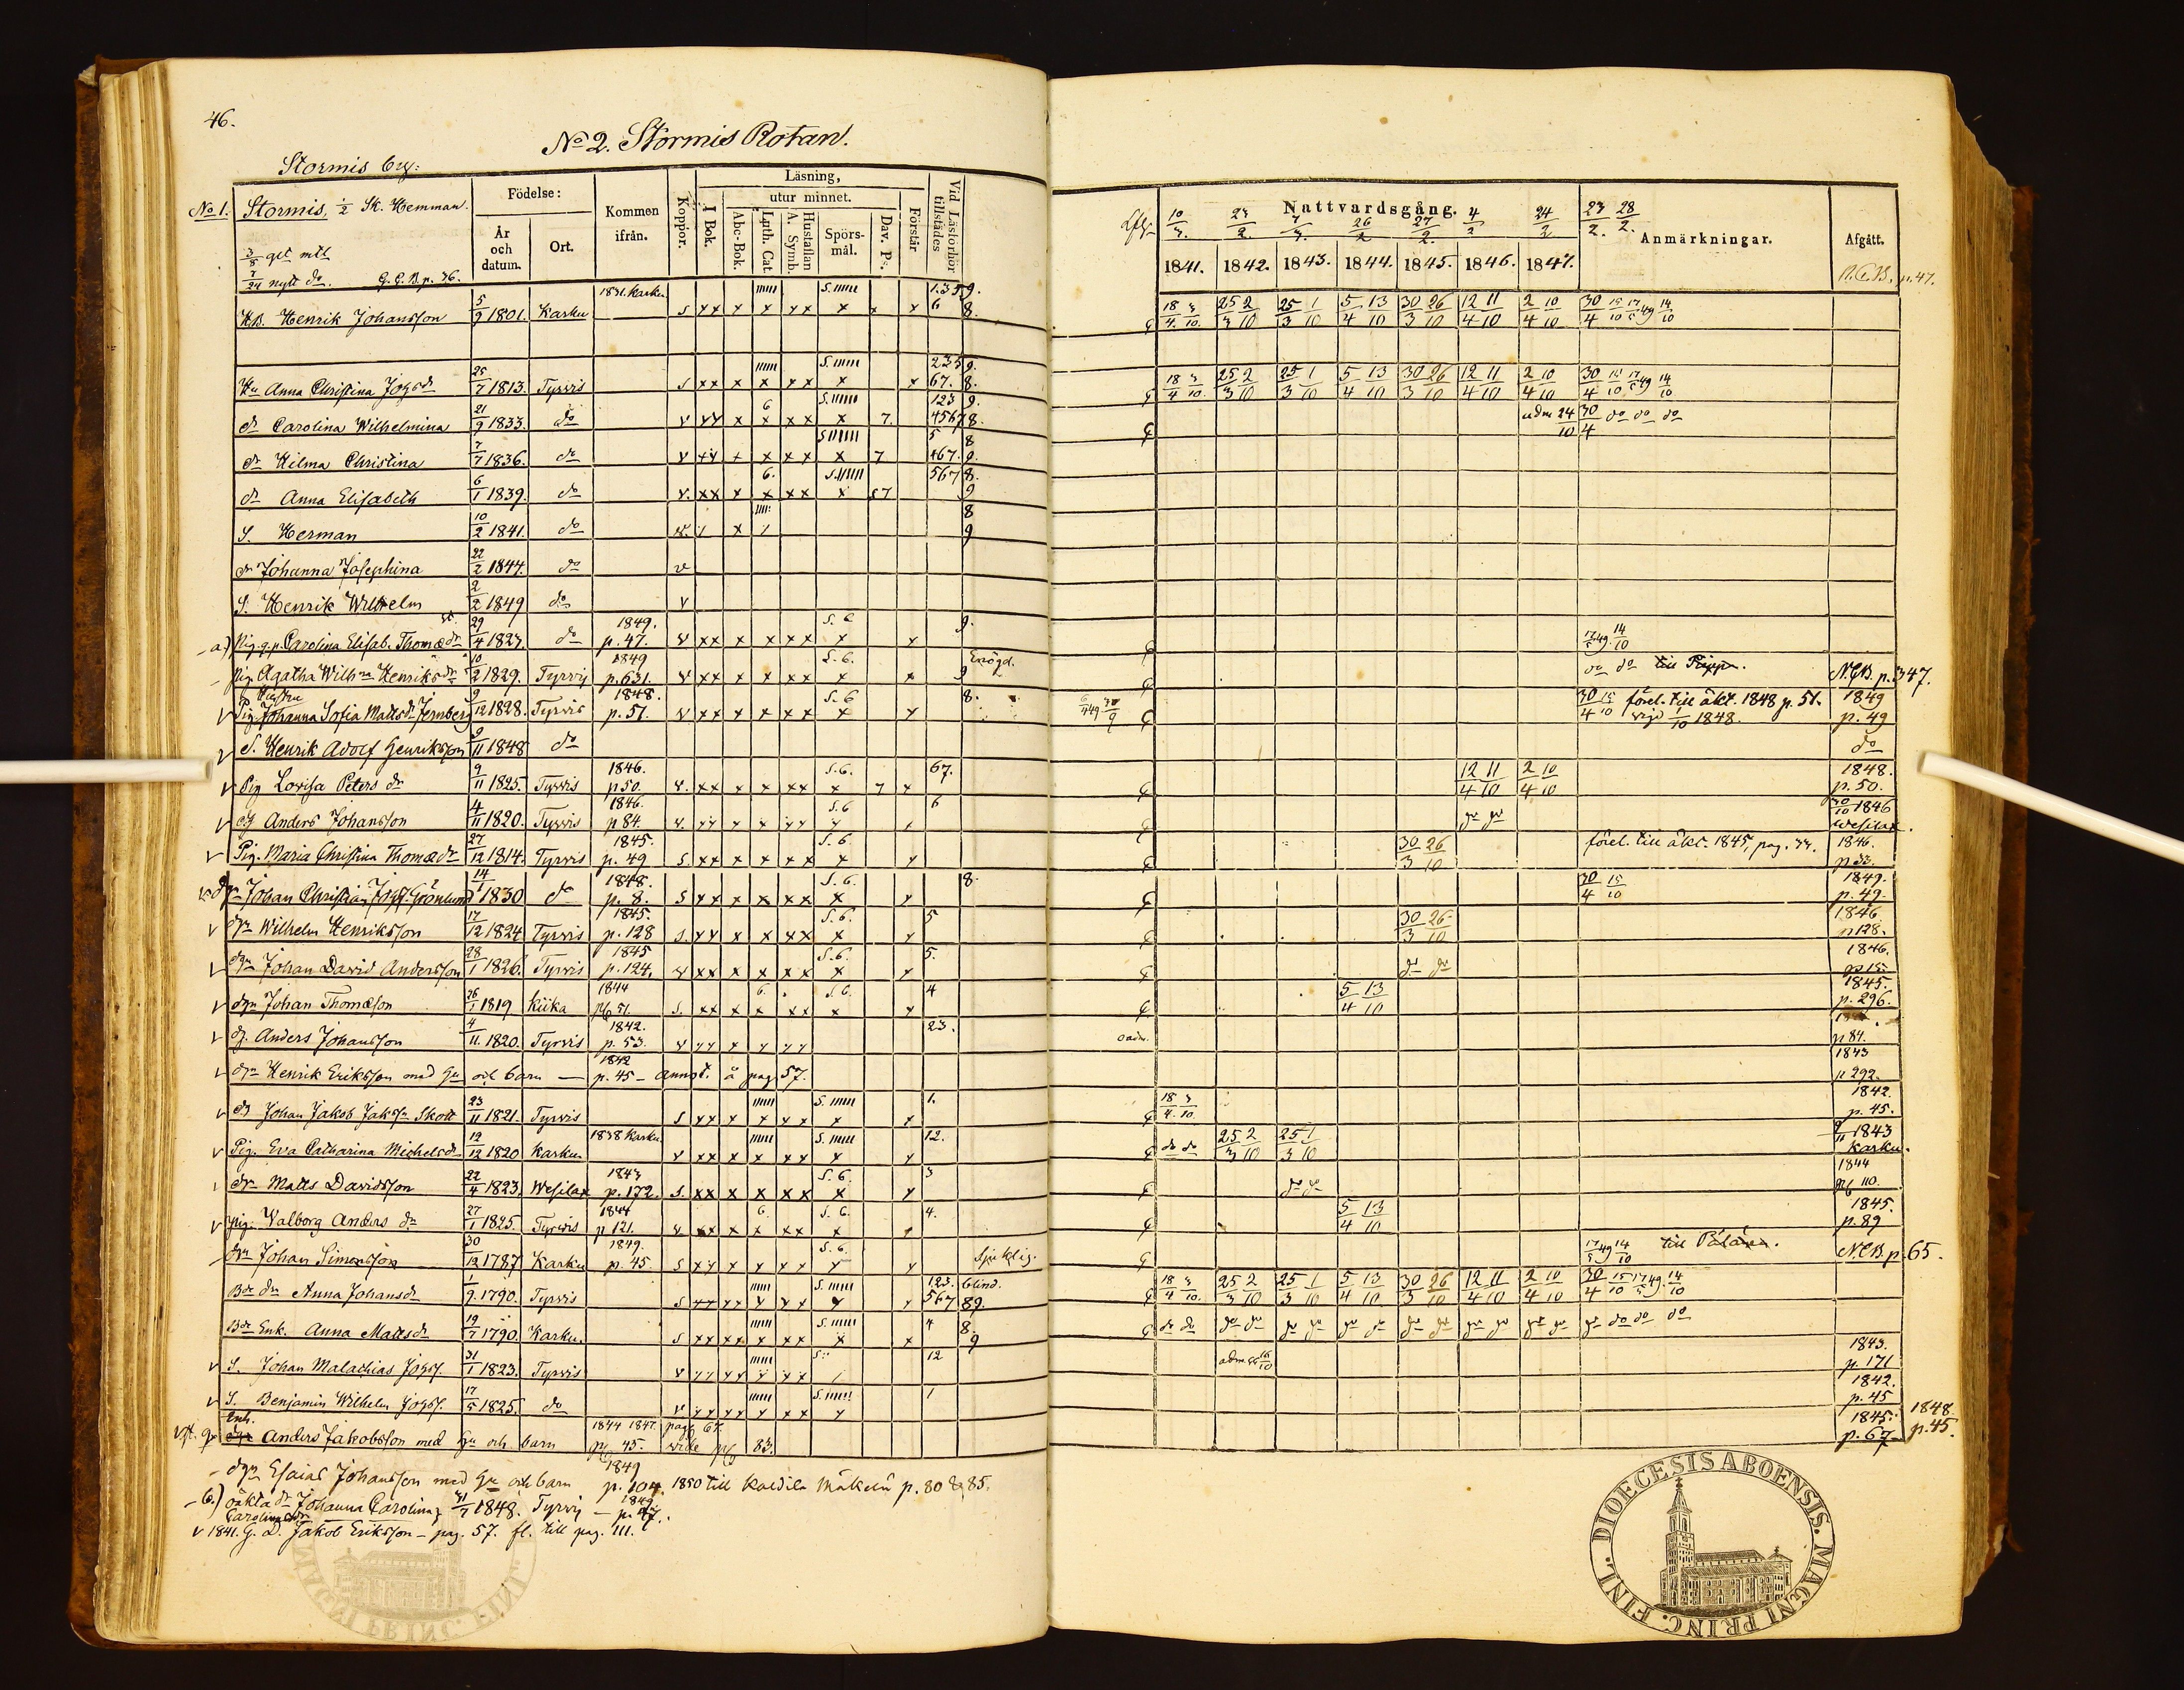 46.
No 2. Stormis Rotan.
Stormis by:
No 1. Stormis, 1/2 Sk. Hemman.
3/8 gt mtl
7/24 nytt do. G.C.B. p. 36.
Födelse:
År och datum.
Ort.
Kommen ifrån.
Koppor.
Läsning,
I Bok.
utur minnet.
Abc-Bok.
Lpth. Cat.
A. Symb.
Hustaflan
Spörs-mål.
Dav. Ps.
Förstår
Vid Läsförhör tillstädes
Nattvardsgång.
10/3. 23/2. 7/3. 26/2 27/2. 4/2 24/2 23/2. 28/2.
1841. 1842. 1843. 1844. 1845. 1846. 1847.
Anmärkningar.
Afgått.
N.C.B. p. 47.
HB. Henrik Johansson 5/9 1801. Karku 1831. Karku s 1.3 5 9. 6 8. 18/4. 3/10. 25/3 2/10 25/3 1/10 5/4 13/10 30/3 26/10 12/4 11/10 2/4 10/10 30/4 15/10 17/5 49 14/10
Hu Anna Christina Johsdr 25/7 1813. Tyrvis s 235 9. 67. 8. 18/4 3/10. 25/3 2/10 25/3 1/10 5/4 13/10 30/3 26/10 12/4 11/10 2/4 10/10 30/4 15/10 17/5 49 14/10
dr Carolina Wilhelmina 21/9 1833. do v 6 7. 123 9. 4567 8. adm 24/10 30/4 do do do
dr Hilma Christina 7/7 1836. do v 7 5 8 467. 9.
dr Anna Elisabeth 6/1 1839. do v. 6. 567 8. 9
S. Herman 10/2 1841. do v. 8 9
dr Johanna Josephina 22/2 1844. do v
S. Henrik Wilhelm 2/2 1849 do v
a.) Pig. Carolina Elisab. Thomædr 29/4 1827. do 1849. p. 47. v S. 6 9. 17/5 49. 14/10
Pig Agatha Wilhna Henriksdr 10/2 1829. Tyrvis 1849 p. 631. v S. 6. Enögd. 9 do do till Pippo. N.C.B. p. 347.
Hustru
Pig. Johanna Sofia Mattsdr Jernberg 9/12 1828. Tyrvis 1848. p. 51. v S. 6 8. 30/4 15/10 förel. till äkt. 1848 p. 51. vigd 1/10 1848. 1849 p. 49
S. Henrik Adolf Henriksson 9/11 1848 do do
Pig Lovisa Peters dr 9/11 1825. Tyrvis 1846. p 50. v. S. 6. 7 67. 12/4 11/10 2/4 10/10 1848. p. 50.
dg Anders Johansson 4/11 1820. Tyrvis 1846. p 84. v. S. 6 6 do do 30/10 1846 Wesilax.
Pig. Maria Christina Thomædr 27/12 1814. Tyrvis 1845. p. 49 s. S. 6. 30/3 26/10 förel. till äkt. 1845, pag. 1846. p 33.
dgn Johan Christian Johss. Grönlund 14/1 1830 do 1848. p. 8. s S. 6. 8. 30/4 15/10 1849. p. 49.
dgn Wilhelm Henriksson 17/12 1824 Tyrvis 1845. p. 128 s. S. 6. 5 30/3 26/10 1846. p 128.
dgn Johan David Andersson 28/1 1826. Tyrvis 1845 p. 124. v S. 6. 5. do do 1846. p 15.
dgn Johan Thomæson 26/1 1819 Kiika 1844 pag 51. s. 6. S. 6. 4 5/4 13/10 1845. p. 296.
dg. Anders Johansson 4/11. 1820. Tyrvis 1842. p. 53. v 23. oadm. p 84.
dgn Henrik Eriksson med Hu och barn — 1842 p. 45 - annot. å pag 57. 1843 p 292.
dg Johan Jakob Jakss. Skott 23/11 1821. Tyrvis s 1. 18/4. 3/10 1842. p. 45.
Pig. Eva Catharina Michelsdr 12/12 1820 Karku 1838 Karku. v 12. do do 25/3 2/10 25/3 1/10 1843 Karku.
dgn Matts Davidsson 22/4 1823. Wesilax 1843 p. 172. s. S. 6. 3 do do 1844 pag 110.
Pig. Walborg Anders dr 27/1 1825. Tyrvis 1844 p 121. v 6. S. 6. 4. 5/4 13/10 1845. p. 89
dgn Johan Simonsson 30/12 1787 Karku 1849. p. 45 s S. 6. Sjuklig. 17/5 49 14/10 till N.C.B. p. 65.
Bdr dr Anna Johansdr 1/9. 1790. Tyrvis s 123. blind. 567 89. 18/4 3/10. 25/3 2/10 25/3 1/10 5/4 13/10 30/3 26/10 12/4 11/10 2/4 10/10 30/4 15/10 17/5 49. 14/10
Bdr Enk. Anna Mattsdr 19/7 1790. Karku. s 4 8. 9 do do do do do do do do do do do do do do do do do do
S. Johan Malachias Johss. 31/1 1823. Tyrvis v 12 adm 16/10 1843. p. 171
S. Benjamin Wilhelm Johss. 17/5 1825. do v 1 1842. p. 45
Enk.
Anders Jakobsson med Hu och barn 1844 1847. pag 67. pag 45. wide pag 83. 1845. p. 67 1848 p. 45.
dgn Esaias Johansson med Hu och barn 1849 p. 104. 1850 till Kaldila Mäkelä p. 80 & 85.
b.) oäkta dr Johanna Carolina 31/7 1848. Tyrvis 1849 p. 47.
Carolinas dr
v 1841. G. D. Jakob Eriksson - pag. 57. fl. till pag. 111.
DIOECESIS ABOENSIS. MAGNI PRINC. FINL.